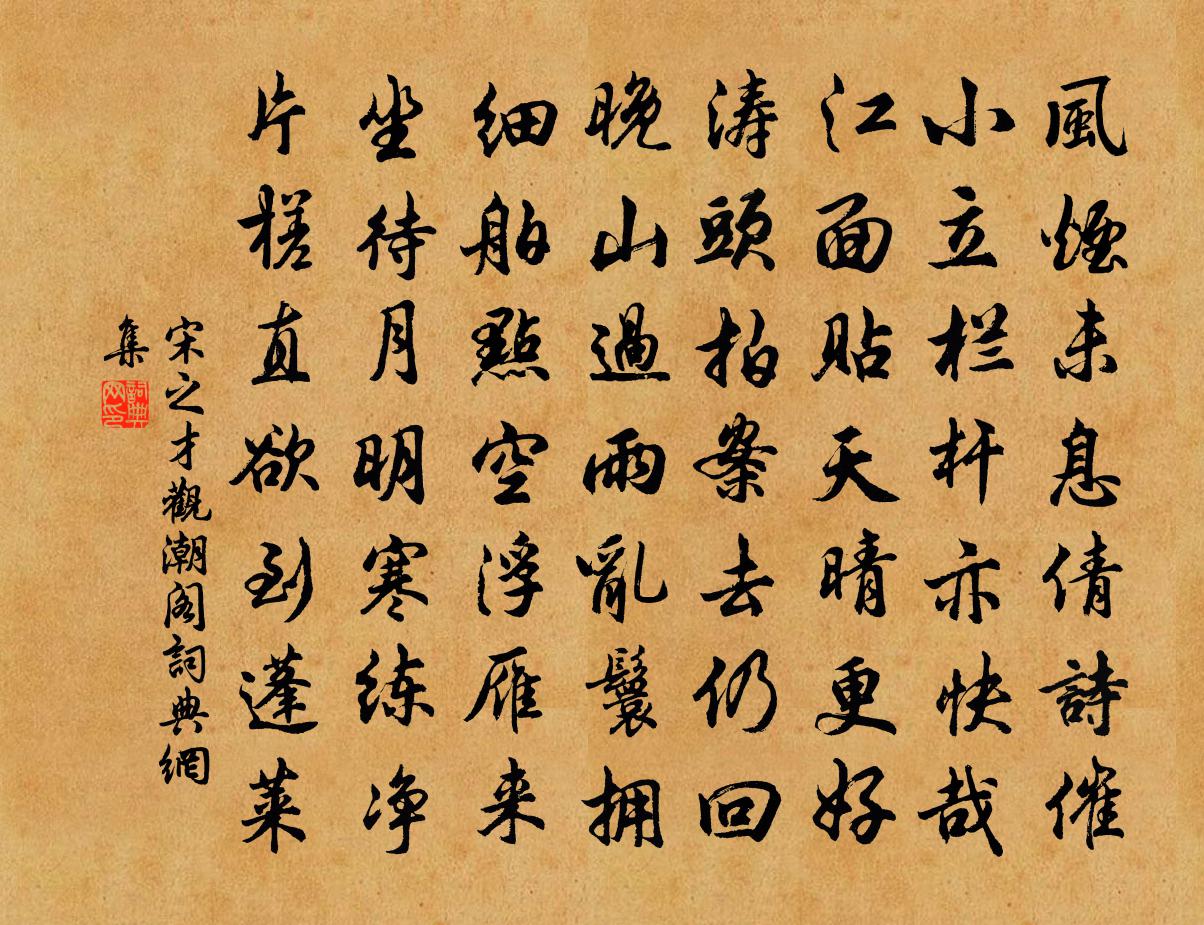 風煙未息倩詩催
小立栏杆亦快哉
江面貼天晴更好
涛頭拍案去仍回
晚山過雨亂鬟拥
细舶點空浮雁来
坐待月明寒练净
片槎直欲到蓬莱
宋之才觀潮阁詞典網
集
詞典
网印